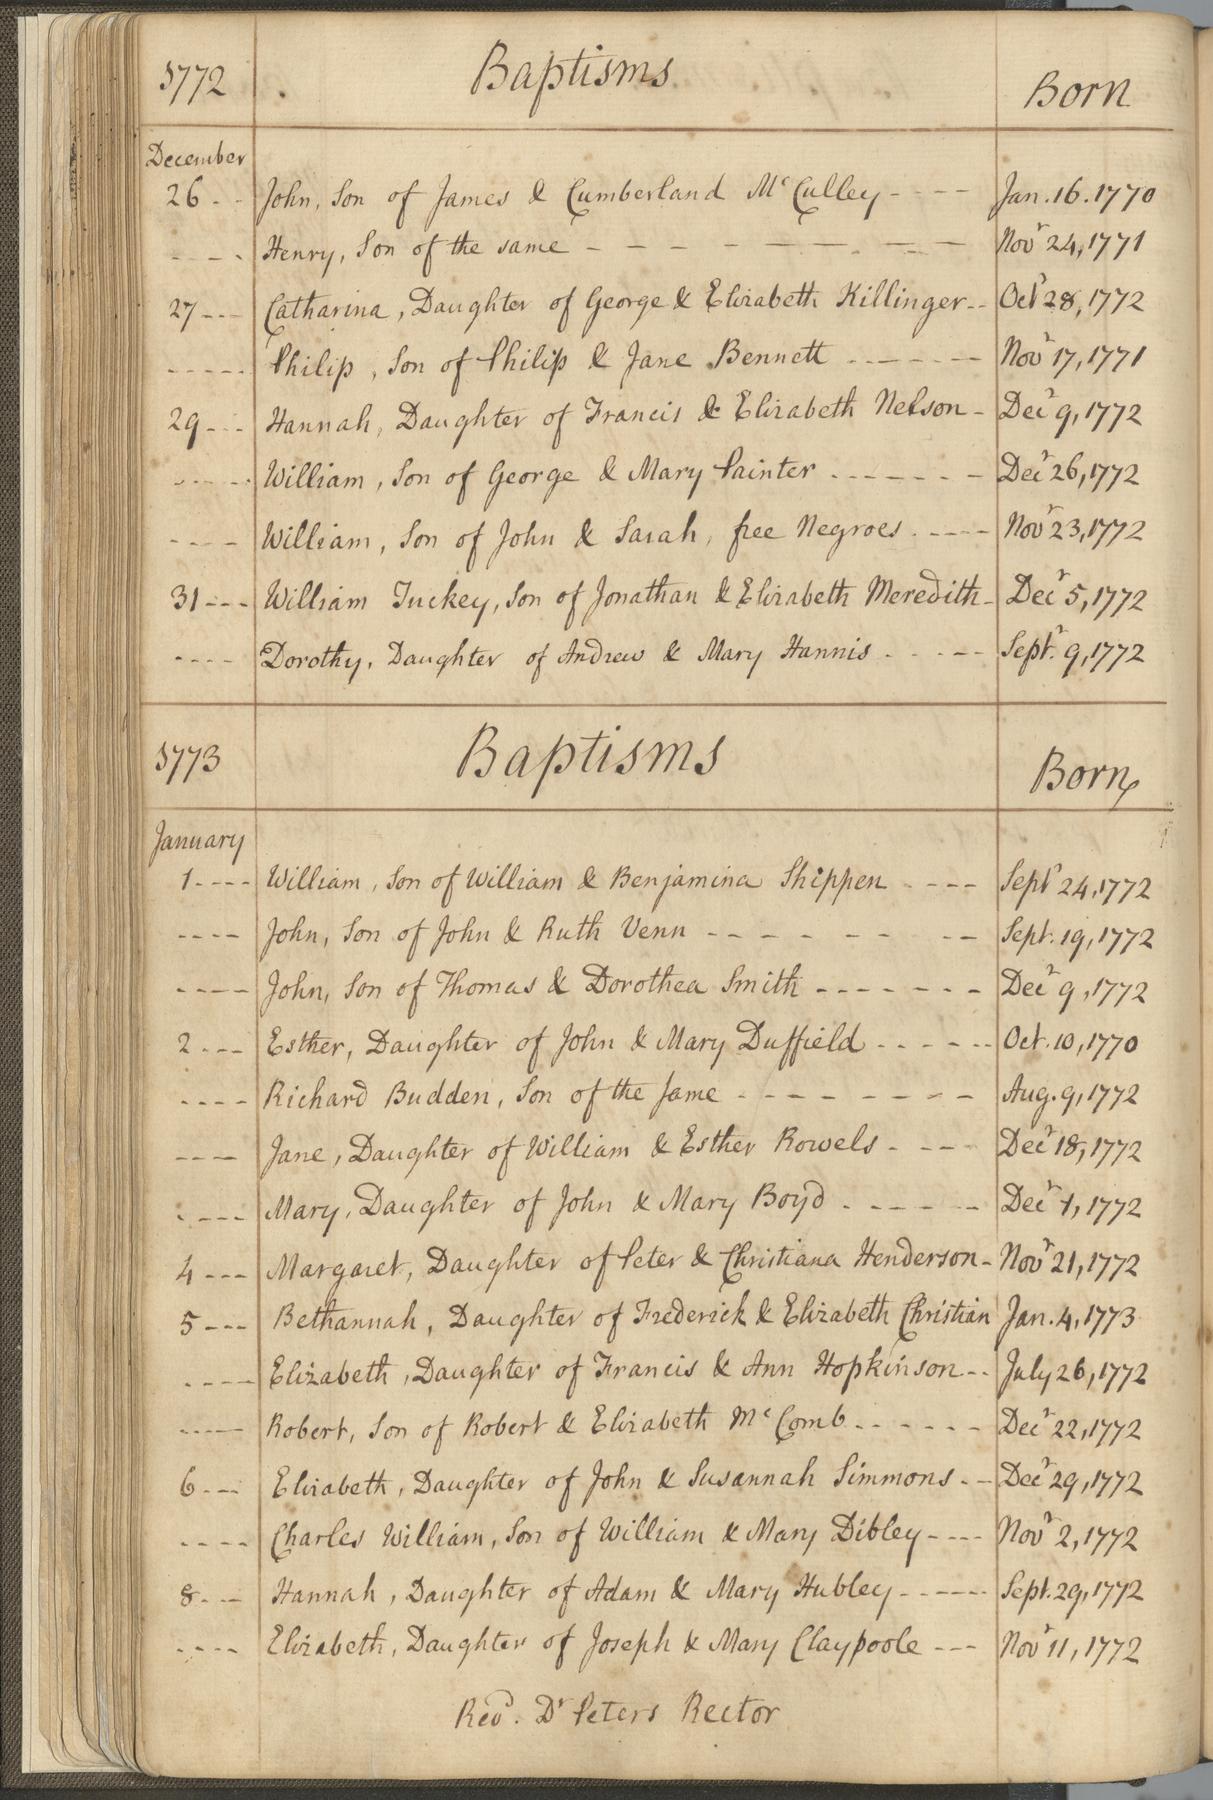 1772 Baptisms Born
December
26 - - John, Son of James & Cumberland McCulley - - - - Jan. 16. 1770
- - - - Henry, Son of the same - - - - - - - - Novr 24, 1771
27 - - - Catharina, Daughter of George & Elizabeth Killinger - - Octr 28, 1772
- - - - - Philip, Son of Philip & Jane Bennett - - - - - - - Novr 17, 1771
29 - - - Hannah, Daughter of Francis & Elizabeth Nelson - Decr 9, 1772
- - - - - William, Son of George & Mary Painter - - - - - - - Decr 26, 1772
- - - - William, Son of John & Sarah, free Negroes - - - - - Novr 23, 1772
31 - - - William Tuckey, Son of Jonathan & Elizabeth Meredith - Decr 5, 1772
- - - - Dorothy, Daughter of Andrew & Mary Hannis - - - - - Septr. 9, 1772
1773 Baptisms Born
January
1 - - - - William, Son of William & Benjamina Shippen - - - - Septr 24, 1772
- - - - John, Son of John & Ruth Venn - - - - - - - - Sept. 19, 1772
- - - - John, Son of Thomas & Dorothea Smith - - - - - - - Decr 9, 1772
2 - - - Esther, Daughter of John & Mary Duffield - - - - - - Oct. 10, 1770
- - - - Richard Budden, Son of the Same - - - - - - - - - Aug. 9, 1772
- - - Jane, Daughter of William & Esther Rowels - - - - Decr 18, 1772
- - - - Mary, Daughter of John & Mary Boyd - - - - - - Decr 1, 1772
4 - - - Margaret, Daughter of Peter & Christiana Henderson - Novr 21, 1772
5 - - - Bethannah, Daughter of Frederick & Elizabeth Christian Jan. 4, 1773
- - - - - Elizabeth, Daughter of Francis & Ann Hopkinson - - July 26, 1772
- - - - Robert, Son of Robert & Elizabeth McComb - - - - - - Decr 22, 1772
6 - - - Elizabeth, Daughter of John & Susannah Simmons - - Decr 29, 1772
- - - - Charles William, Son of William & Mary Dibley - - - - Novr 2, 1772
8 - - - Hannah, Daughter of Adam & Mary Hubley - - - - - Sept. 29, 1772
- - - - Elizabeth, Daughter of Joseph & Mary Claypoole - - - Novr 11, 1772
Revd. Dr Peters Rector